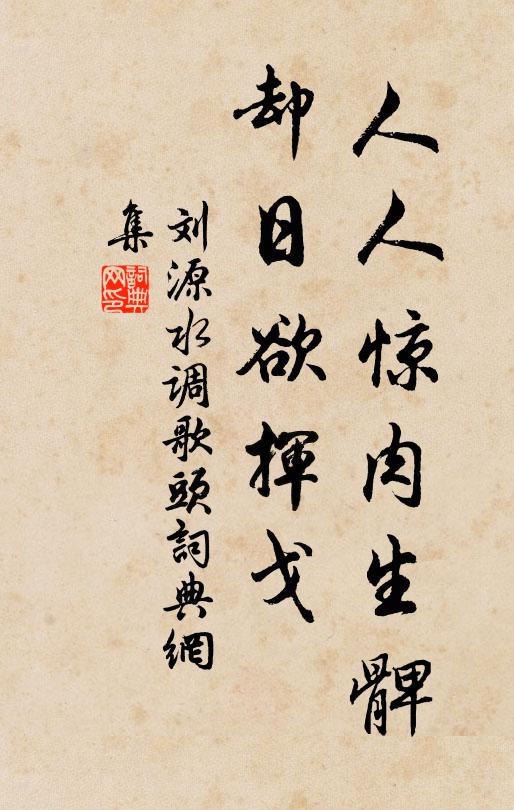 人人惊肉生髀
却日欲揮戈
刘源水调歌頭詞典網
集
詞典网印